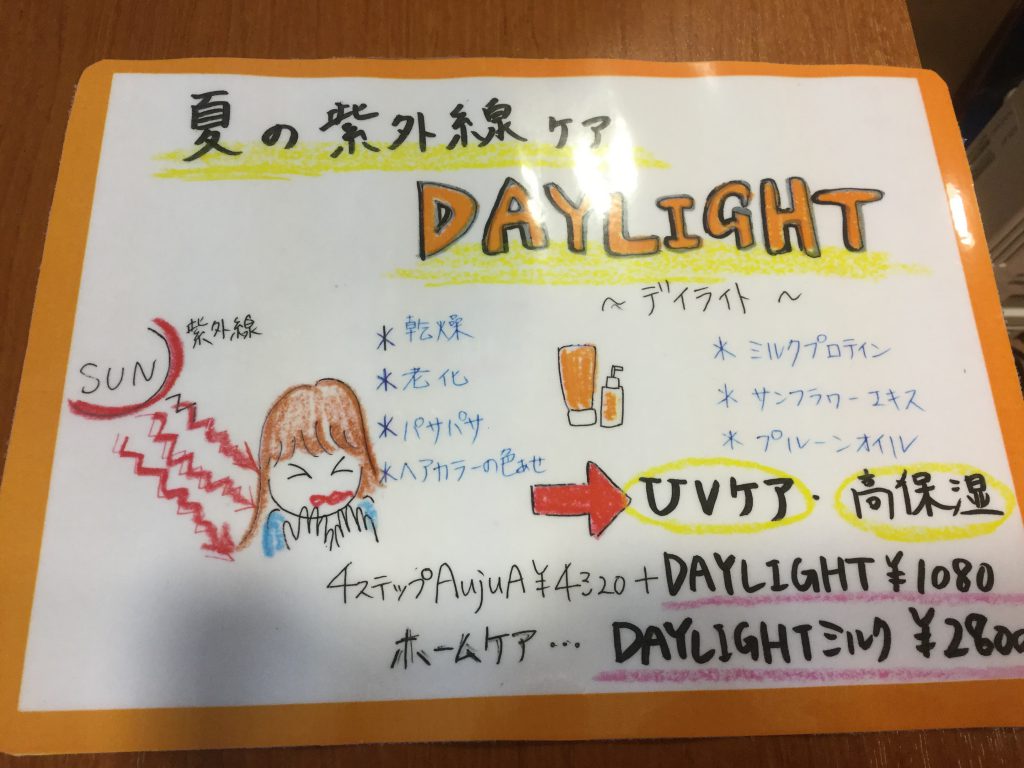 夏の紫外線ケア
DAYLIGHT
～デイライト～
SUN
紫外線
*乾燥
*老化
*パサパサ
*ヘアカラーの色あせ
*ミルクプロテイン
*サンフラワーエキス
*プルーンオイル
UVケア・高保湿
4ステップAujuA¥4320+DAYLIGHT¥1080
ホームケア…DAYLIGHTミルク¥2800